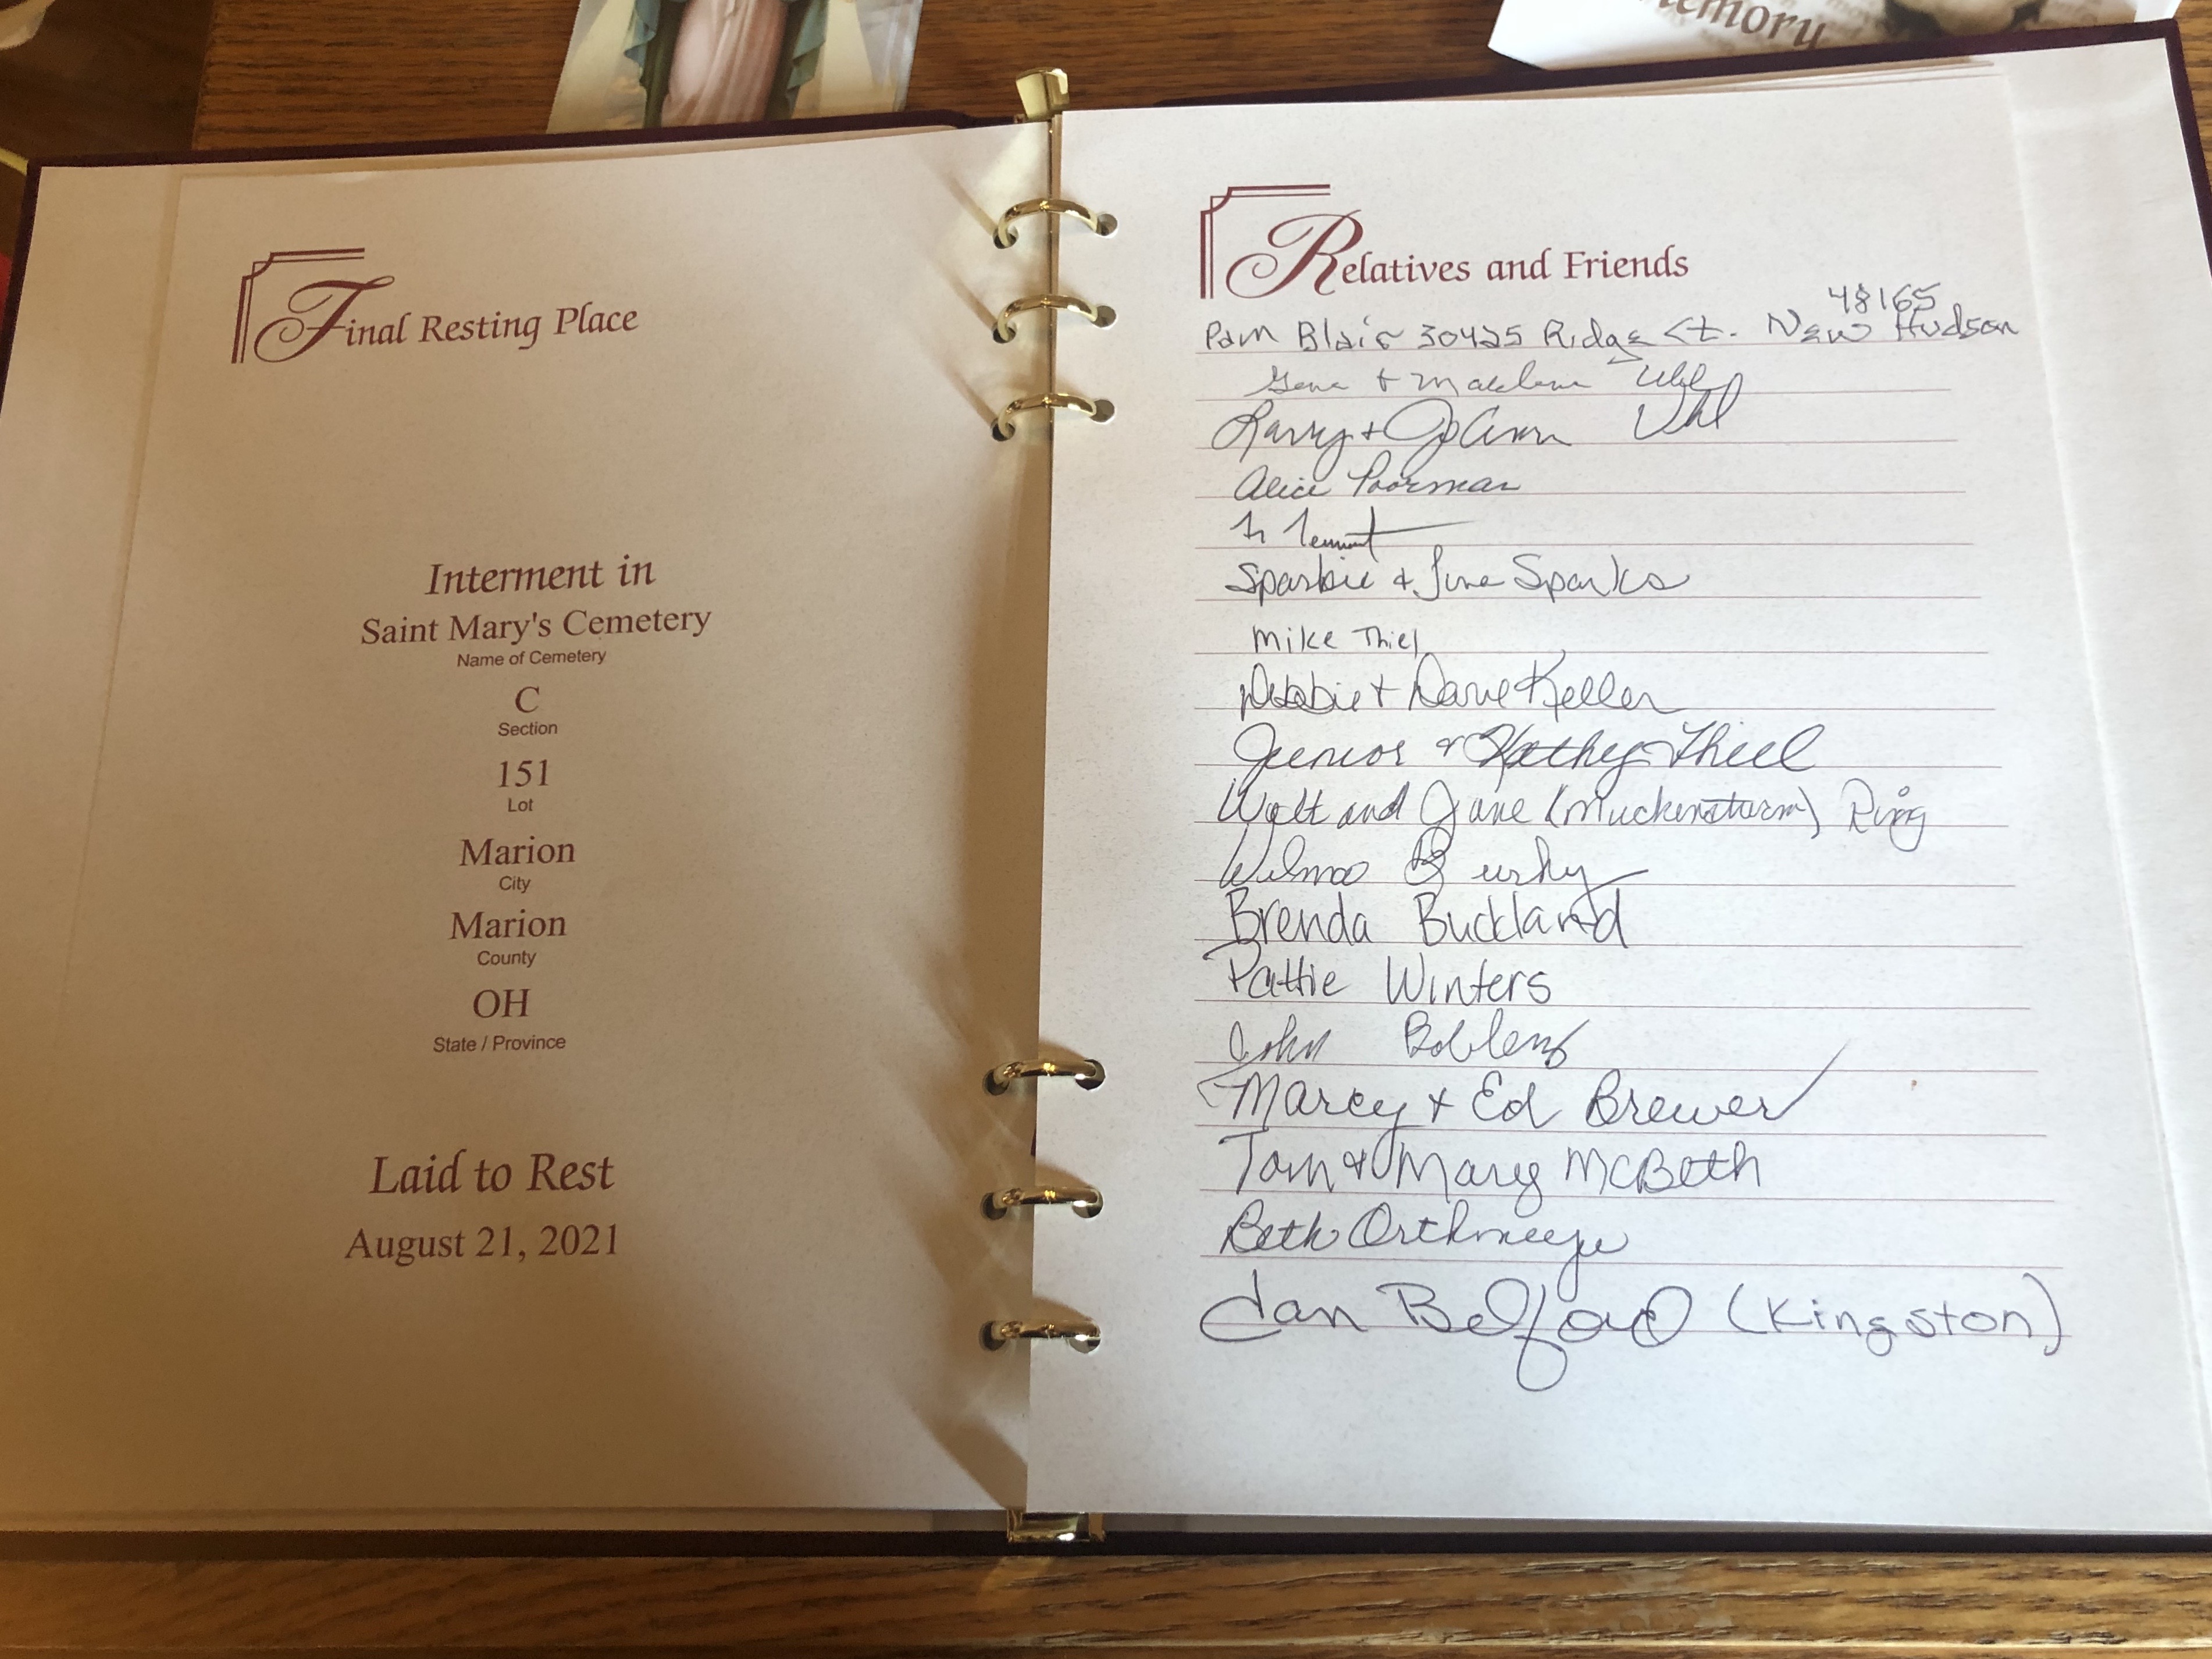 emory
Final Resting Place
Interment in
Saint Mary's Cemetery
Name of Cemetery
C
Section
151
Lot
Marion
City
Marion
County
OH
State / Province
Laid to Rest
August 21, 2021
Relatives and Friends
48165
Pam Blair 30425 Ridge Ct. New Hudson
Gene + Madelene Uhl
Larry + JoAnn Uhl
Alice Poorman
Sparkie & June Sparks
Mike Thiel
Debbie + Dave Keller
Junior & Kathy Thiel
Walt and Jane (Muckensturm) Ring
Wilma
Brenda Buckland
Pattie Winters
John
Marcy + Ed Brewer
Tom & Mary McBeth
Beth Orthmeyer
Jan Belford (Kingston)